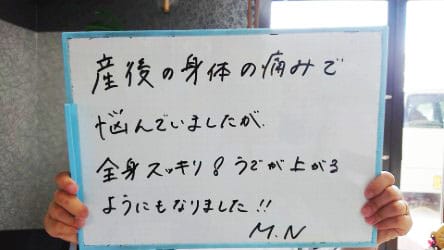 産後の身体の痛みで
悩んでいましたが、
全身スッキリ！うでが上がる
ようにもなりました!!
M.N